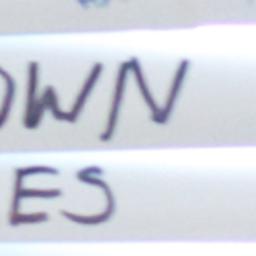 OWN
ES